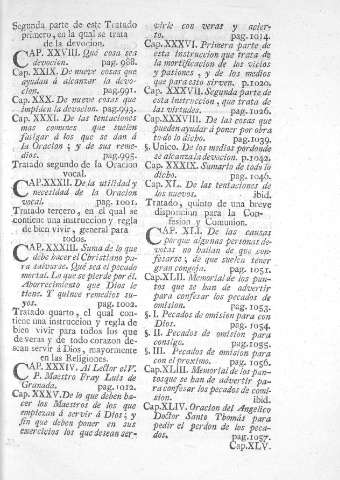 Segunda parte de este Tratado
primero, en la qual se trata
de la devocion.
CAP. XXVIII. Qué cosa sea
devocion. pag. 988.
Cap. XXIX. De nueve cosas que
ayudan á alcanzar la devo-
cion. pag.991.
Cap. XXX. De nueve cosas que
impiden la devocion. pag.993.
Cap. XXXI. De las tentaciones
mas comunes que suelen
fatigar á los que se dan á
la Oracion; y de sus reme-
dios. pag.995.
Tratado segundo de la Oracion
vocal.
CAP.XXXII. De la utilidad y
necesidad de la Oracion
vocal. pag. 1001.
Tratado tercero, en el qual se
contiene una instruccion y regla
de bien vivir, general para
todos.
CAP. XXXIII. Suma de lo que
debe hacer el Christiano pa-
ra salvarse. Qué sea el pecado
mortal. Lo que se pierde por él.
Aborrecimiento que Dios le
tiene. Y quince remedios su-
yos. pag. 1002.
Tratado quarto, el qual con-
tiene una instruccion y regla de
bien vivir para todos los que
de veras y de todo corazon de-
sean servir á Dios, mayormente
en las Religiones.
CAP. XXXIV. Al Lector el V.
P. Maestro Fray Luis de
Granada. pag. 1012.
Cap. XXXV. De lo que deben ha-
cer los Maestros de los que
empiezan á servir á Dios; y
fin que deben poner en sus
exercicios los que desean ser-
virle con veras y acier-
to. pag.1014.
Cap. XXXVI. Primera parte de
esta instruccion que trata de
la mortificacion de los vicios
y pasiones, y de los medios
que para esto sirven. p.1020.
Cap. XXXVII. Segunda parte de
esta instruccion, que trata de
las virtudes. pag. 1026.
Cap. XXXVIII. De las cosas que
pueden ayudar á poner por obra
todo lo dicho. pag.1039.
§. Unico. De los medios por donde
se alcanza la devocion. p.1042.
Cap. XXXIX. Sumario de todo lo
dicho. pag. 1046.
Cap. XL. De las tentaciones de
los nuevos. ibid.
Tratado, quinto de una breve
disposicion para la Con-
fesion y Comunion.
CAP. XLI. De las causas
porque algunas personas de-
votas no hallan de que con-
fesarse; de que suelen tener
gran congoja. pag. 1051.
Cap.XLII. Memorial de los pun-
tos que se han de advertir
para confesar los pecados de
omision. ibid.
§. I. Pecados de omision para con
Dios. pag. 1054.
§. II. Pecados de omision para
consigo. pag.1055.
§. III. Pecados de omision para
con el proximo. pag. 1056.
Cap.XLIII. Memorial de los pun-
tos que se han de advertir pa-
ra confesar los pecados de comi-
sion. ibid.
Cap.XLIV. Oracion del Angelico
Doctor Santo Thomás para
pedir el perdon de los peca-
dos. pag.1057.
Cap.XLV.